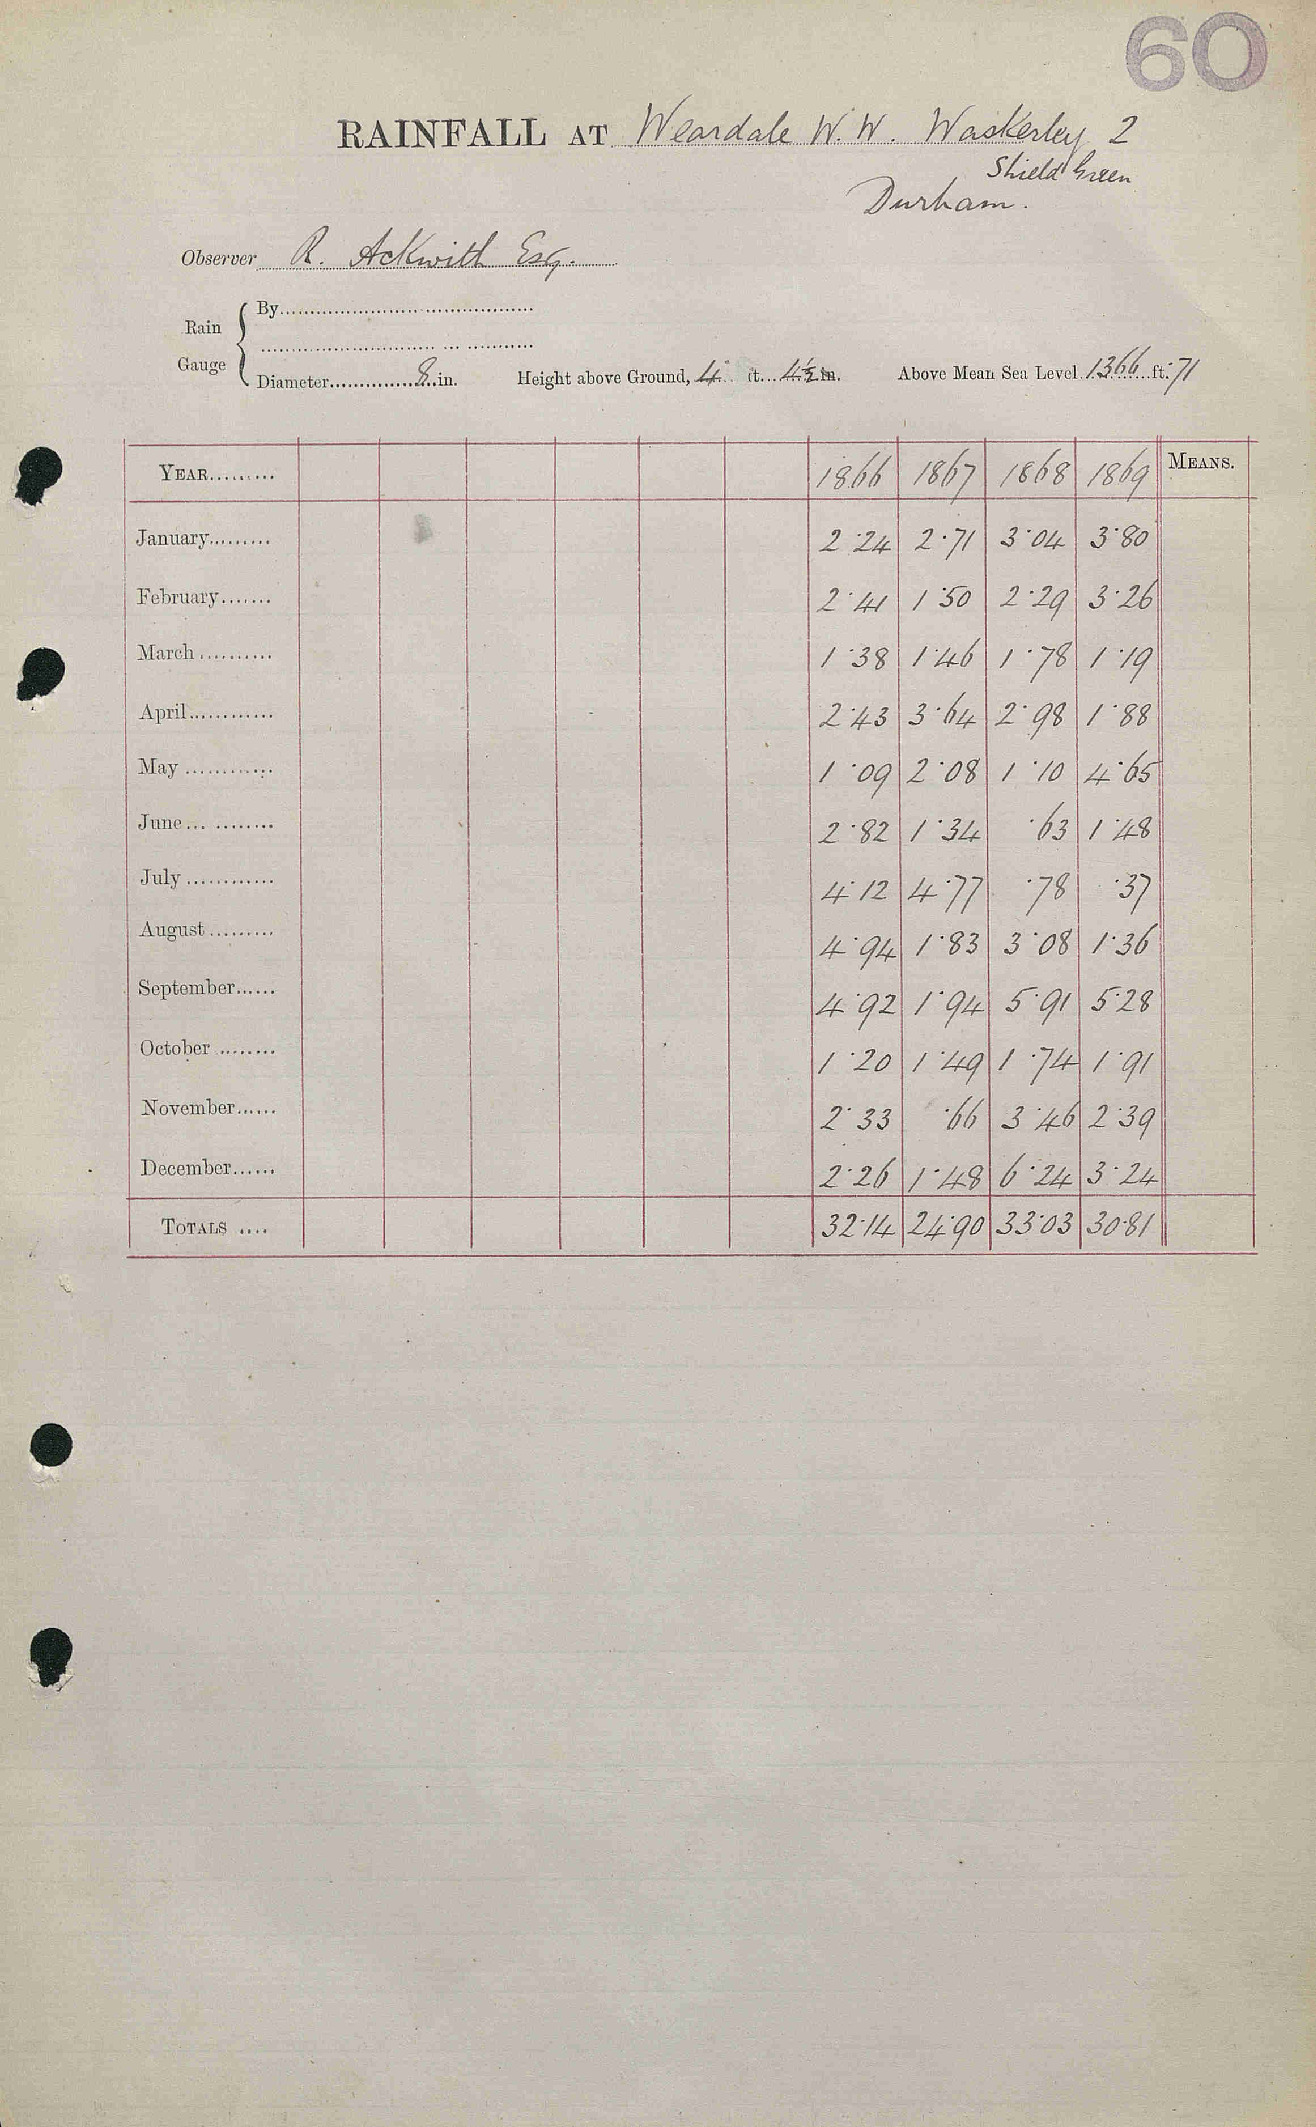 60
RAINFALL AT Weardale W.W. Waskerley 2
Shield Green
Durham.
Observer R. Ackwith Esq.
Rain Gauge { By
Diameter 8 in. Height above Ground, 4 ft. 4½ in. Above Mean Sea Level 1366 ft. 71
YEAR 1866 1867 1868 1869 MEANS.
January 2.24 2.71 3.04 3.80
February 2.41 1.50 2.29 3.26
March 1.38 1.46 1.78 1.19
April 2.43 3.64 2.98 1.88
May 1.09 2.08 1.10 4.65
June 2.82 1.34 .63 1.48
July 4.12 4.77 .78 .37
August 4.94 1.83 3.08 1.36
September 4.92 1.94 5.91 5.28
October 1.20 1.49 1.74 1.91
November 2.33 .66 3.46 2.39
December 2.26 1.48 6.24 3.24
TOTALS 32.14 24.90 33.03 30.81